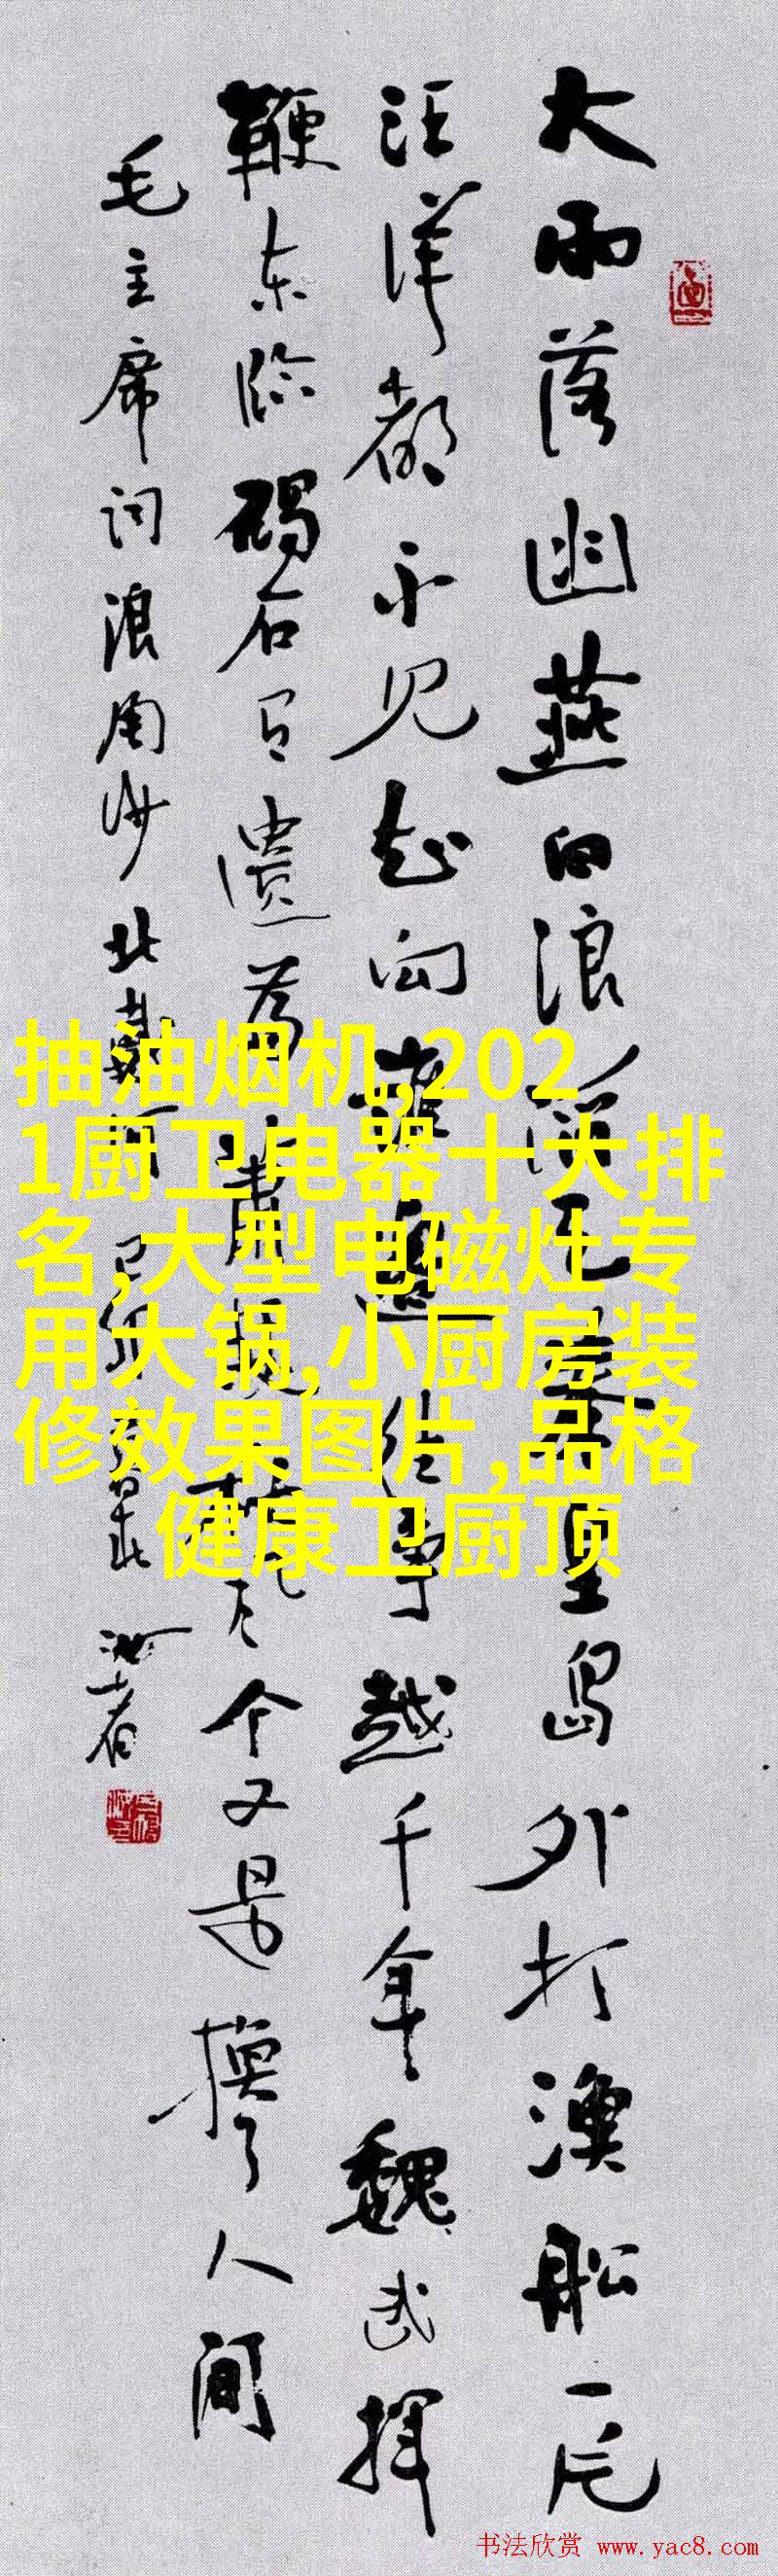 大雨落幽燕白浪滔天秦皇岛外打漁船一片
汪洋都不见知向谁边往事越千年魏武挥
鞭东临碣石有遗篇萧瑟秋风今又是换了人间
毛主席词浪淘沙北戴河己卯
抽油烟机,202
1厨卫电器十大排
名,大型电磁灶专
用大锅,小厨房装
修效果图片,品格
健康卫厨顶
书法欣赏 www.yac8.com